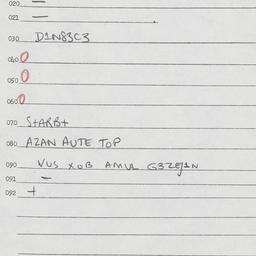 020 —
021 —
030 D1N83C3
040 0
050 0
060 0
070 S+ARB+
080 AZAN AUTE TOP
090 VUS XOB AMUL G3ZEJ1N
091 –
092 +